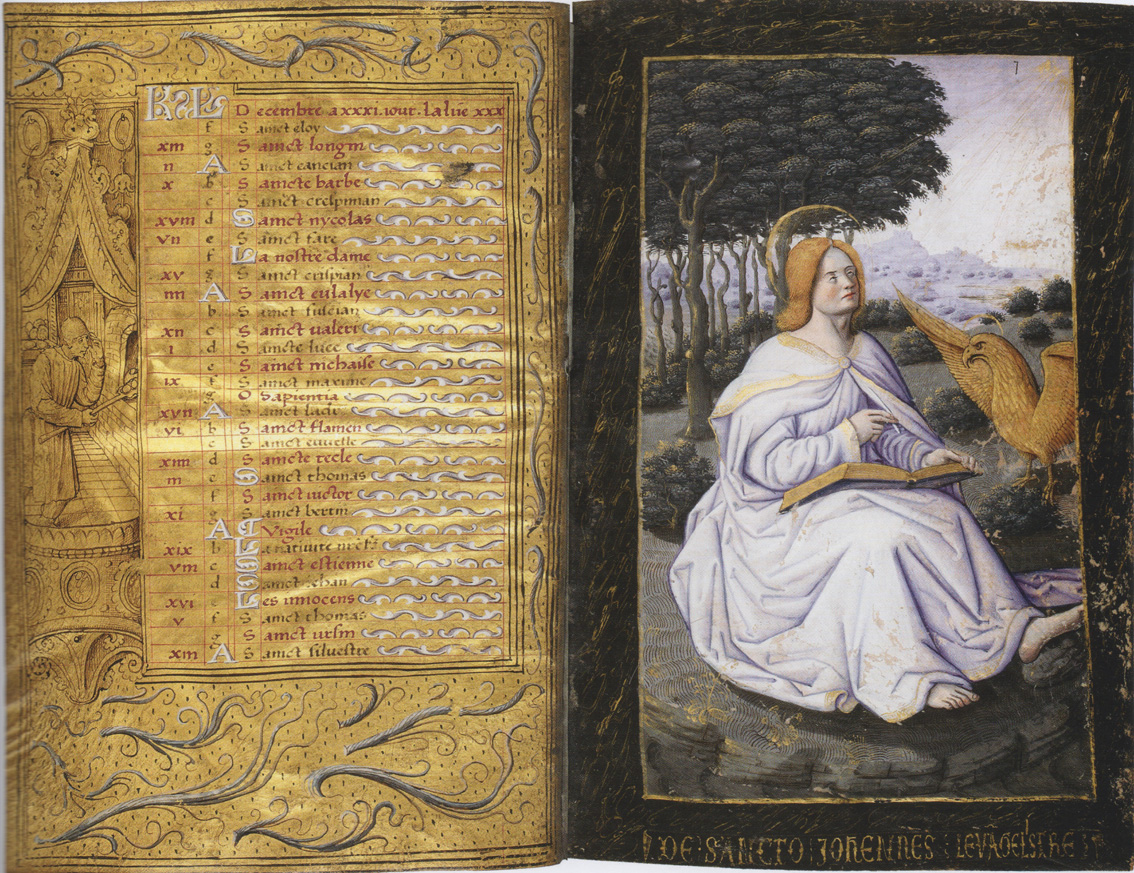 KL Decembre a xxxi. iour. La lūe xxx
f Sainct eloy
xiii g Sainct longin
ii A Sainct cancian
x b Saincte barbe
c Sainct crespinian
xviii d Sainct nycolas
vii e Sainct fare
f La nostre dame
xv g Sainct crispian
iiii A Sainct eulalye
b Sainct fulcian
xii c Sainct valeri
i d Saincte luce
e Sainct nichaise
ix f Sainct maxime
g O Sapientia
xvii A Sainct
vi b Sainct flamen
c Sainct
xiiii d Saincte tecle
iii e Sainct thomas
f Sainct victor
xi g Sainct bertin
A Vigile
xix b La nativite
viii c Sainct estienne
d Sainct jehan
xvi e Les innocens
v f Sainct thomas
g Sainct ursin
xiii A Sainct silvestre
DE SANCTO JOHENNES LEVAGELSTRE